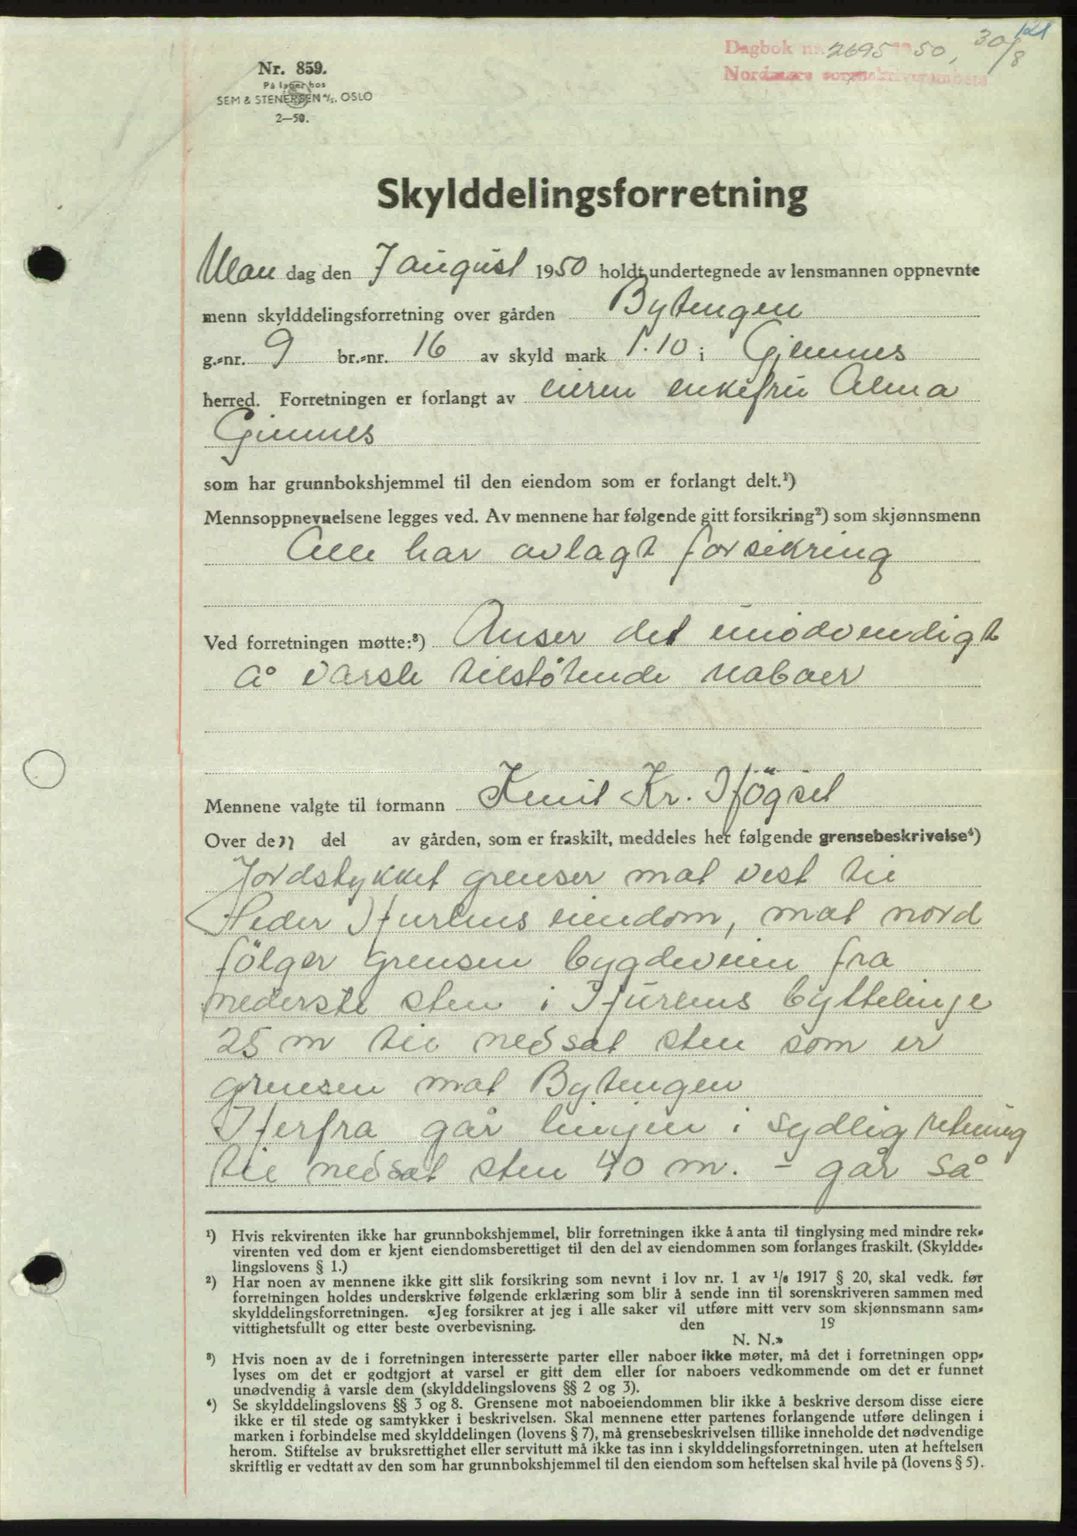 121
Dagbok nr. 2695 50, 30/8
Nordmøre sorenskriverembete
Nr. 859.
På lager hos
SEM & STENERSEN A/S. OSLO
2—50.
Skylddelingsforretning
Man dag den 7 august 1950 holdt undertegnede av lensmannen oppnevnte
menn skylddelingsforretning over gården Bytengen
g.-nr. 9 br.-nr. 16 av skyld mark 1.10 i Gjemnes
herred. Forretningen er forlangt av eieren enkefru Alma
Gimnes
som har grunnbokshjemmel til den eiendom som er forlangt delt.¹)
Mennsoppnevnelsene legges ved. Av mennene har følgende gitt forsikring²) som skjønnsmenn
Alle har avlagt forsikring
Ved forretningen møtte:³) Anser det unødvendigt
å varsle tilstøtende naboer
Mennene valgte til formann Knut Kr. Høgset
Over den del av gården, som er fraskilt, meddeles her følgende grensebeskrivelse⁴)
Jordstykket grenser mot vest til
Peder Furlens eiendom, mot nord
følger grensen bygdeveien fra
nederste sten i Furlens byttelinje
25 m til nedsat sten som er
grensen mot Bytengen
Herfra går linjen i sydlig retning
til nedsat sten 40 m. – går så
¹) Hvis rekvirenten ikke har grunnbokshjemmel, blir forretningen ikke å anta til tinglysing med mindre rek-
virenten ved dom er kjent eiendomsberettiget til den del av eiendommen som forlanges fraskilt. (Skyldde-
lingslovens § 1.)
²) Har noen av mennene ikke gitt slik forsikring som nevnt i lov nr. 1 av 1/6 1917 § 20, skal vedk. før
forretningen holdes underskrive følgende erklæring som blir å sende inn til sorenskriveren sammen med
skylddelingsforretningen. «Jeg forsikrer at jeg i alle saker vil utføre mitt verv som skjønnsmann sam-
vittighetsfullt og etter beste overbevisning. den 19
N. N.»
³) Hvis noen av de i forretningen interesserte parter eller naboer ikke møter, må det i forretningen opp-
lyses om det er godtgjort at varsel er gitt dem eller for naboers vedkommende om det er funnet
unødvendig å varsle dem (skylddelingslovens §§ 2 og 3).
⁴) Se skylddelingslovens §§ 3 og 8. Grensene mot naboeiendommen blir ikke å beskrive dersom disse eiere
ikke er til stede og samtykker i beskrivelsen. Skal mennene etter partenes forlangende utføre delingen i
marken i forbindelse med skylddelingen (lovens § 7), må grensebeskrivelsen tillike inneholde det nødvendige
herom. Stiftelse av bruksrettighet eller servitutt må ikke tas inn i skylddelingsforretningen. uten at heftelsen
skriftlig er vedtatt av den som har grunnbokshjemmel til den eiendom som heftelsen skal hvile på (lovens § 5).